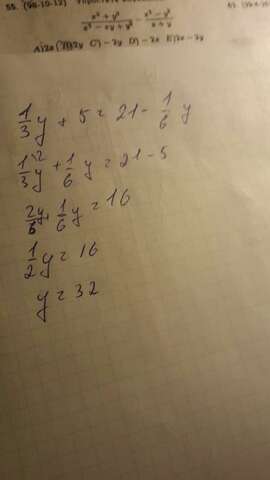 55. (98-10-12) Упростите
x³ + y³ / x² − xy + y² − x² − y² / x + y
A) 2x B) 2y C) −2y D) −2x E) 2x − 2y
1/3 y + 5 = 21 − 1/6 y
1/3 y² + 1/6 y = 21 − 5
2/6 y + 1/6 y = 16
1/2 y = 16
y = 32